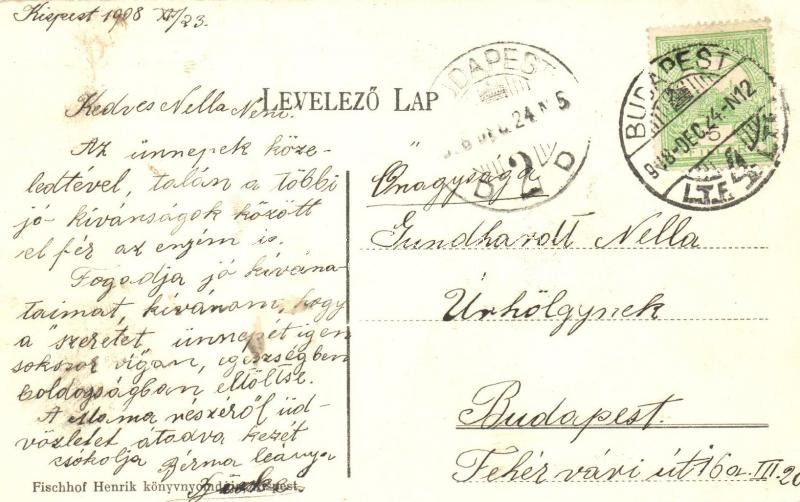 Kispest 1908 XII/23.
LEVELEZŐ LAP
Kedves Nella Neni.
Az ünnepek köze-
ledtével, talán a többi
jó kívánságok között
el fér az enyém is.
Fogadja jó kívána-
taimat, kívánom, hogy
a "szeretet ünnepét igen
sokszor vígan, egeszségben
boldogságban eltöltse.
A Mama részéről üd-
vözletét átadva kezét
csókolja Bérma leánya
Fischhof Henrik könyvnyomdája, Kispest.
BUDAPEST
908 DEC. 24. N 5
2 D
BUDAPEST
908 DEC 24 - N12
Önagysága
Gundhardt Nella
Úrhölgynek
Budapest.
Fehér vári út 16a III. 20